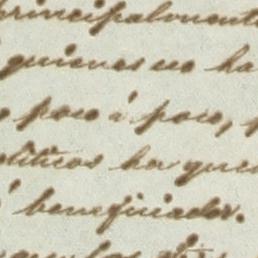 principalmente
quienes no ha
poco á poco,
políticos ha que
á beneficiador.